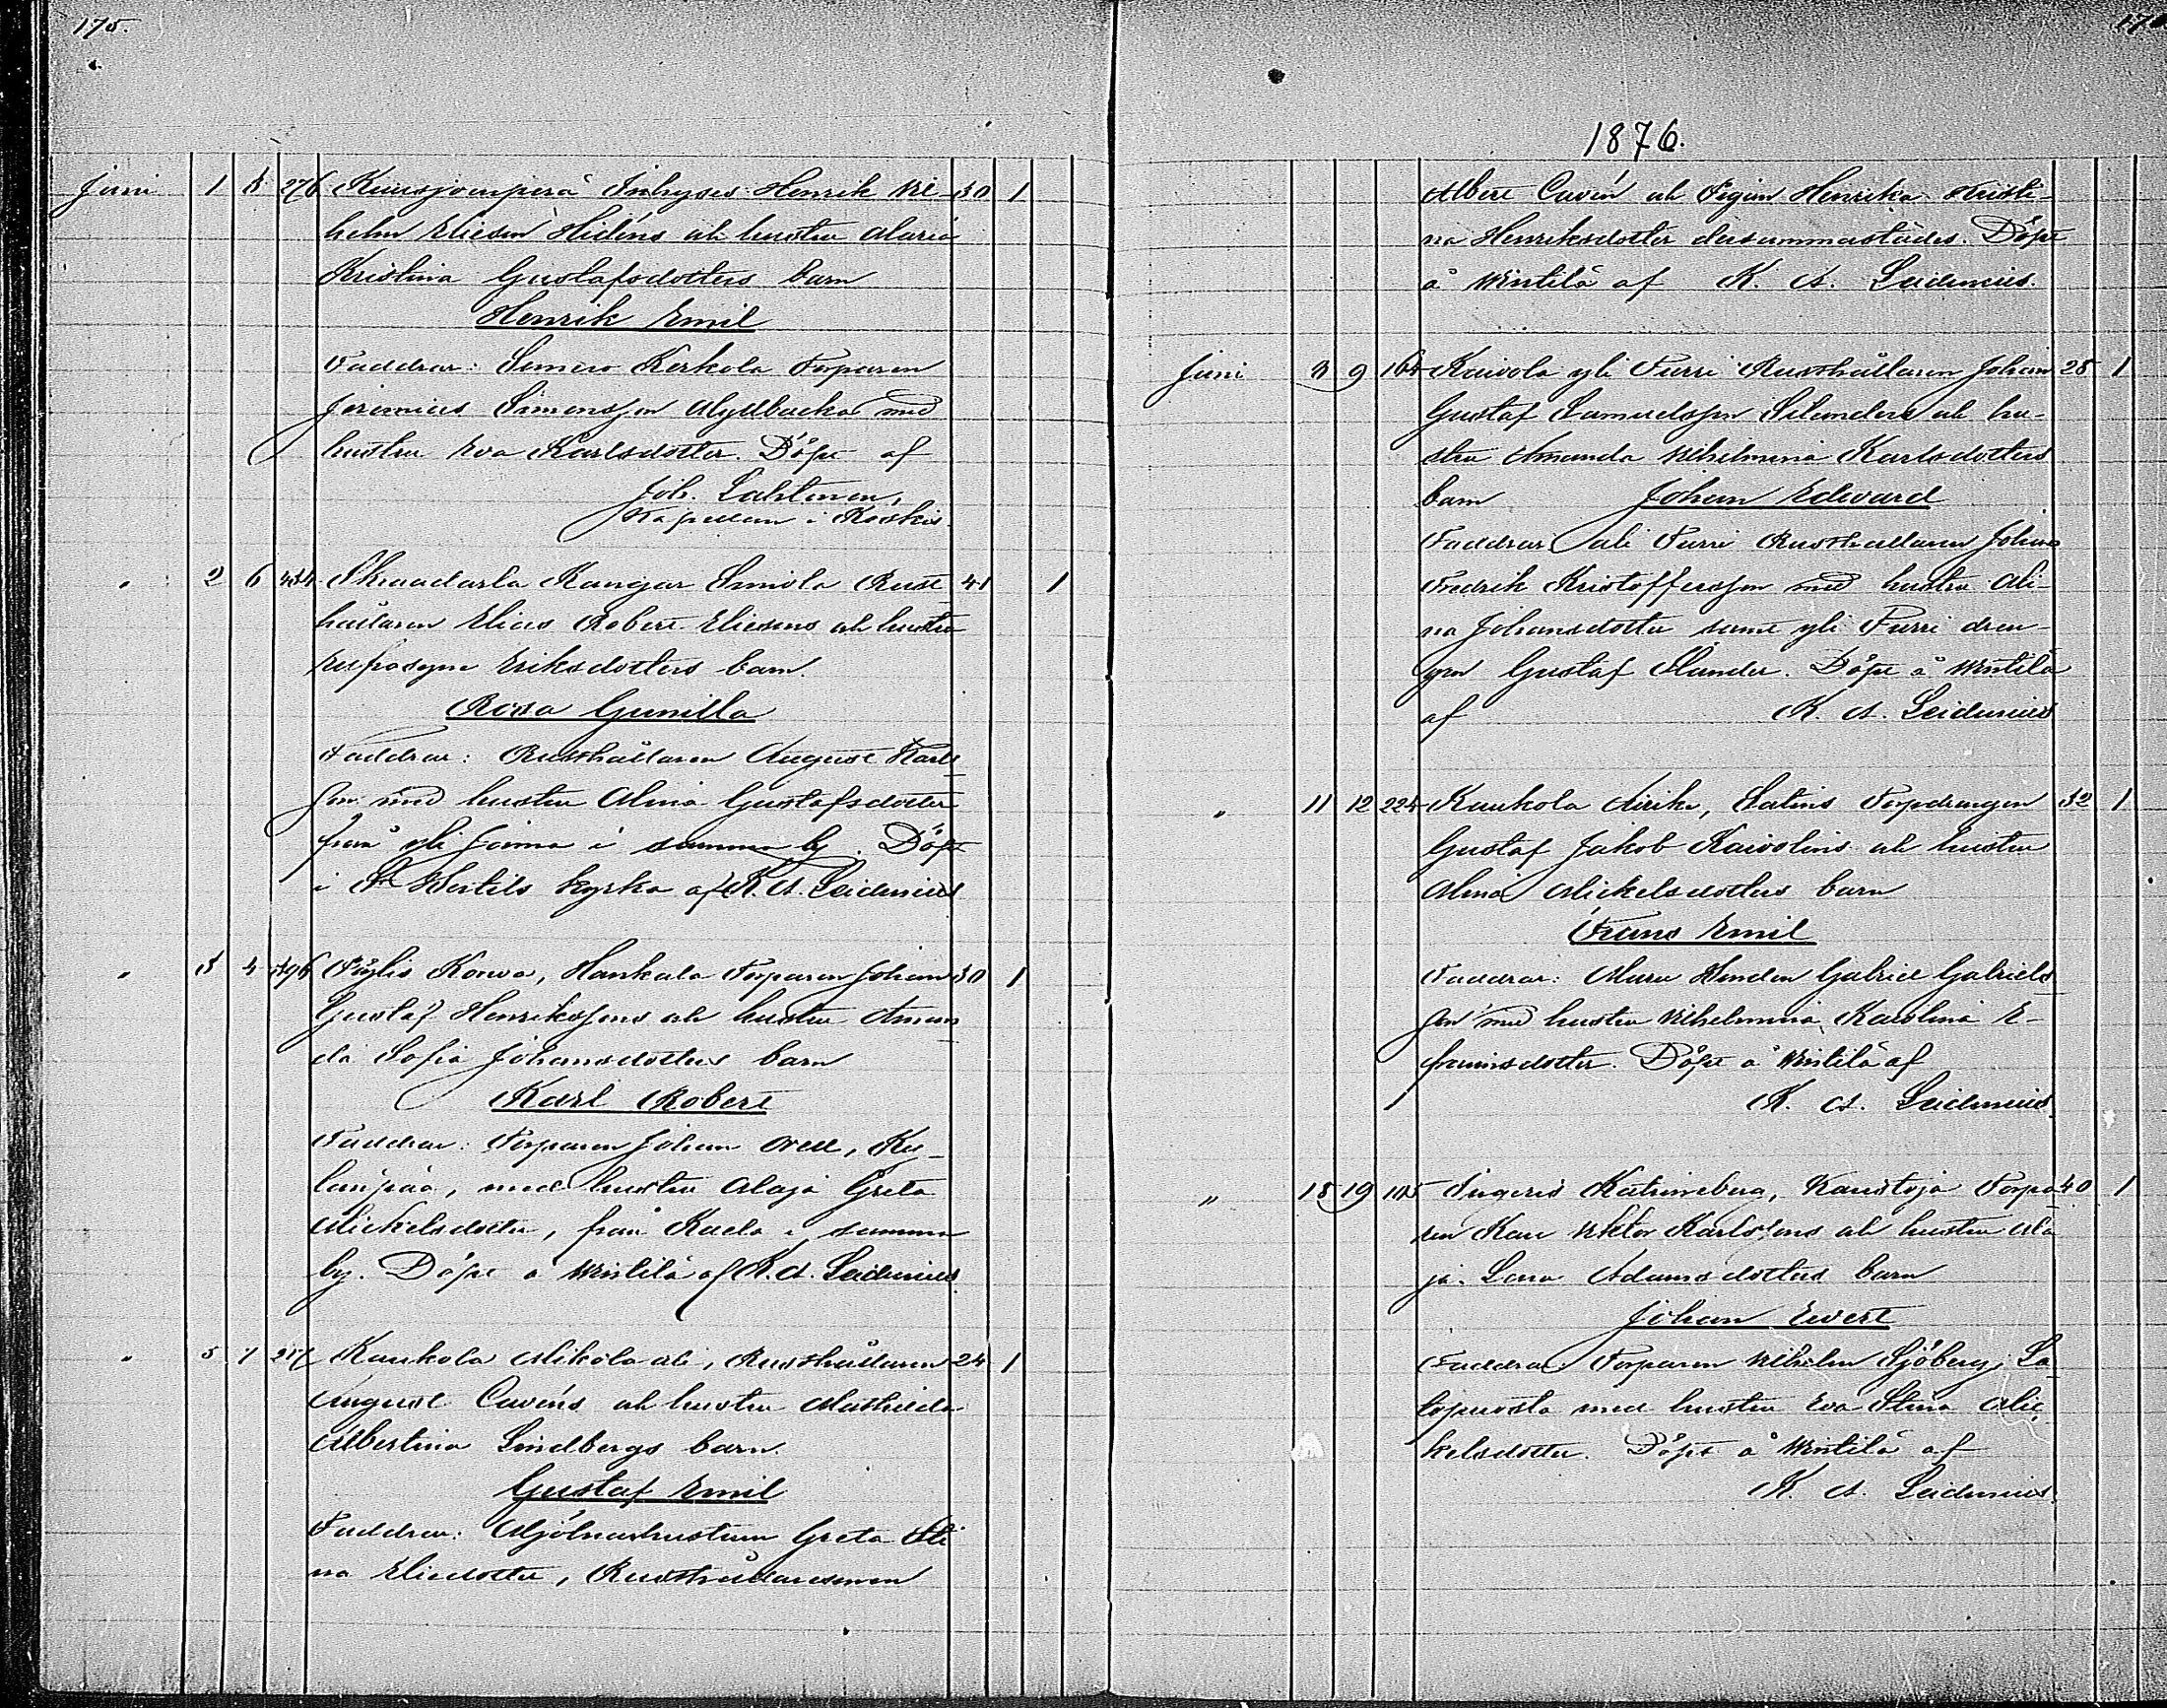 175.
Juni 1 3 276 Kuusjoenperä Inhyses Henrik Wil- 30 1
helm Eliesin Hidéns och hustru Maria
Kristina Gustafsdotters barn
Henrik Emil
Faddrar: Somero Kerkola Torparen
Jeremias Simonsson Myllbacka med
hustru Eva Karlsdotter. Döpt af
Joh. Lahtinen,
Kapellan i Koskis.
" 2 6 Skuadarla Kangar Simola Rust- 41 1
hållaren Elias Robert Eliesens och hustru
Eufrosyne Eriksdotters barn.
Rosa Gunilla
Faddrar: Rusthållaren August Karls-
son med hustru Alina Gustafsdotter
från yli Joima i samma by. Döpt
i St Bertils kyrka af K. A. Leidenius
" 3 4 496 Pöylis Korwa, Hankala Torparen Johan 30 1
Gustaf Henrikssons och hustru Aman-
da Sofia Johansdotters barn
Karl Robert
Faddrar: Torparen Johan Orell, Ku-
lanpää, med hustru Maja Greta
Mickelsdotter, från Kaela i samma
by. Döpt å Wintilä af K. A. Leidenius
" 5 7 Kaukola Mikola ali, Rusthållaren 24 1
August Cavéns och hustru Mathilda
Albertina Lindbergs barn.
Gustaf Emil
Faddrar: Mjölnarhustrun Greta Sti-
na Eliedotter, Rusthållaresonen
1876.
Albert Cavén och Pigan Henrika Kristi-
na Henriksdotter dersammastädes. Döpt
å Wintilä af K. A. Leidenius.
Juni 8 9 164 Kaivola yli Purri Rusthållaren Johan 28 1
Gustaf Samuelsson Silanders och hu-
stru Amanda Wilhelmina Karlsdotters
barn Johan Edvard
Faddrar: ali Purri Rusthållaren Johan
Fredrik Kristoffersson med hustru Ali-
na Johansdotter samt yli Purri dren-
gen Gustaf Ilander. Döpt å Wintilä
af K. A. Leidenius
" 11 12 224 Kaukola Airike, Satins Torpdrengen 32 1
Gustaf Jakob Kaivolins och hustru
Alina Mickelsdotters barn
Frans Emil
Faddrar: Gabriel Gabriels-
son med hustru Wilhelmina Karolina E-
framsdotter. Döpt å Wintilä af
K. A. Leidenius.
" 18 19 105 Ingeris Katrineberg, Kaustoja Torpa- 40 1
ren Karl Viktor Karlssons och hustru Ma-
ja Lena Adamsdotters barn
Johan Evert
Faddrar: Torparen Wilhelm Sjöberg, La-
topuosta med hustru Eva Stina Mic-
kelsdotter. Döpt å Wintilä af
K. A. Leidenius.